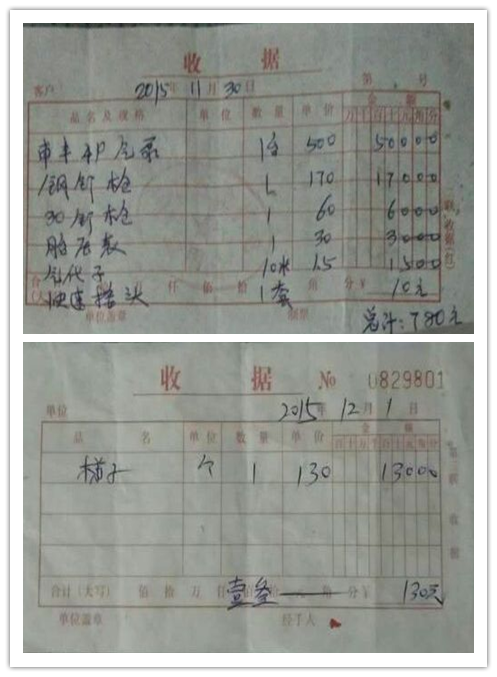 收 据
客户 2015年 11月 30日 第 号
品名及规格 单位 数量 单价 金额
万千百十元角分
气泵 1台 500 50000
钢钉枪 1 170 17000
30钉枪 1 60 6000
胎压表 1 30 3000
气代子 10米 1.5 1500
快速接头 1套 10元
合 仟 佰 拾 角 分¥
单位盖章 总计:780元
收 据 № 0829801
单位 2015年 12月 1日
品 名 单位 数量 单价 金额
百十万千百十元角分
梯子 个 1 130 13000
第三联 收据
合计(大写) 佰 拾 万 仟 壹佰叁拾 元 角 分¥ 130元
单位盖章 经手人